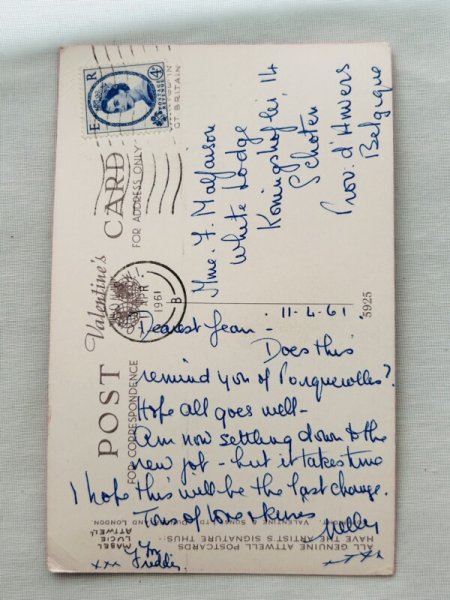 Valentine's
POST CARD
FOR CORRESPONDENCE
FOR ADDRESS ONLY
E R
POSTAGE
4D
GT. BRITAIN
APR
1961
B
Mme. F. Malfaison
White Lodge
Koningshoflei, 14
Schoten
Prov. d'Anvers
Belgique
11-4-61.
Dearest Jean -
Does this
remind you of Porquerolles?
Hope all goes well -
Am now settling down to the
new job - but it takes time
I hope this will be the last change.
Tons of love & kisses
Nelly
xxxx
Freddie
xxx
5925
MABEL
LUCIE
ATTWELL
ALL GENUINE ATTWELL POSTCARDS
HAVE THE ARTIST'S SIGNATURE THUS:-
VALENTINE & SONS, LTD., DUNDEE AND LONDON